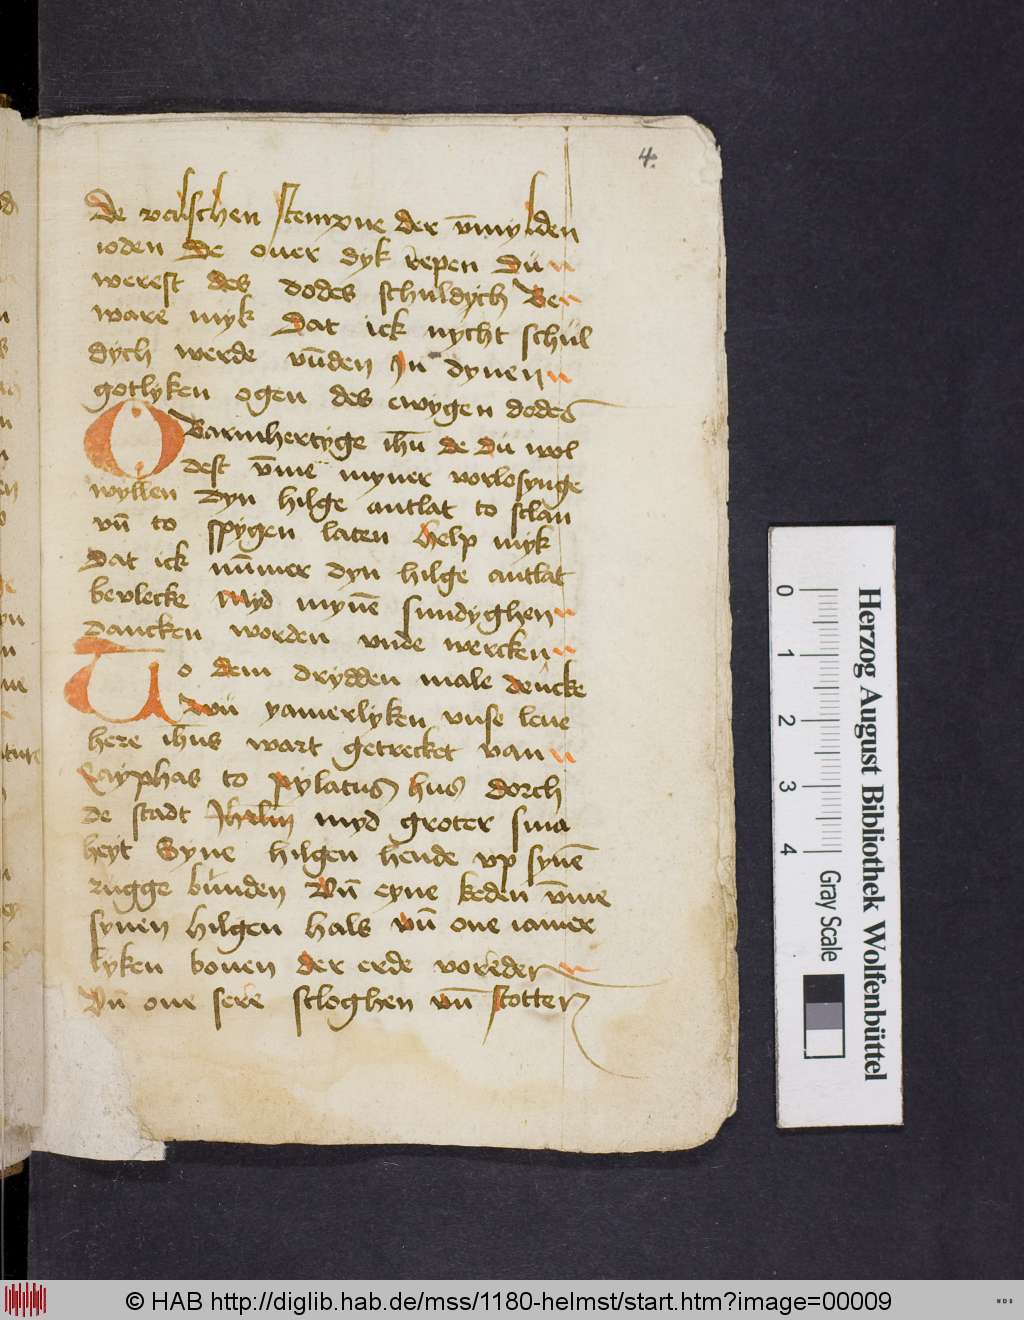 4.
De valschen stempne der v̄mylden
ioden De ouer dyk repen Du
werest des dodes schuldych Be
ware myk Dat ick nycht schul
dych werde vūden Jn dynen
gotlyken ogen des ewygen dodes
O Barmhertyge ihū de du wol
dest v̄me myner vorlosynge
wyllen dyn hilge antlat to slan
vn̄ to spygen laten help myk
Dat ick nūmer dyn hilge antlat
bevlecke Myd mynē sundyghen
dancken worden vnde wercken
To dem drydden male dencke
Wu yamerlyken vnse leue
here ihūs wart getrecket van
Cayphas to pylatus hus dorch
de stadt Jhrlm myd groter sma
heyt Syne hilgen hende vp synē
rugge bunden Vn̄ eyne keden v̄me
synen hilgen hals vn̄ one iamer
lyken bouen der erde
Vn̄ one sere sloghen vn̄ stotten
0 1 2 3 4
Gray Scale
Herzog August Bibliothek Wolfenbüttel
© HAB http://diglib.hab.de/mss/1180-helmst/start.htm?image=00009